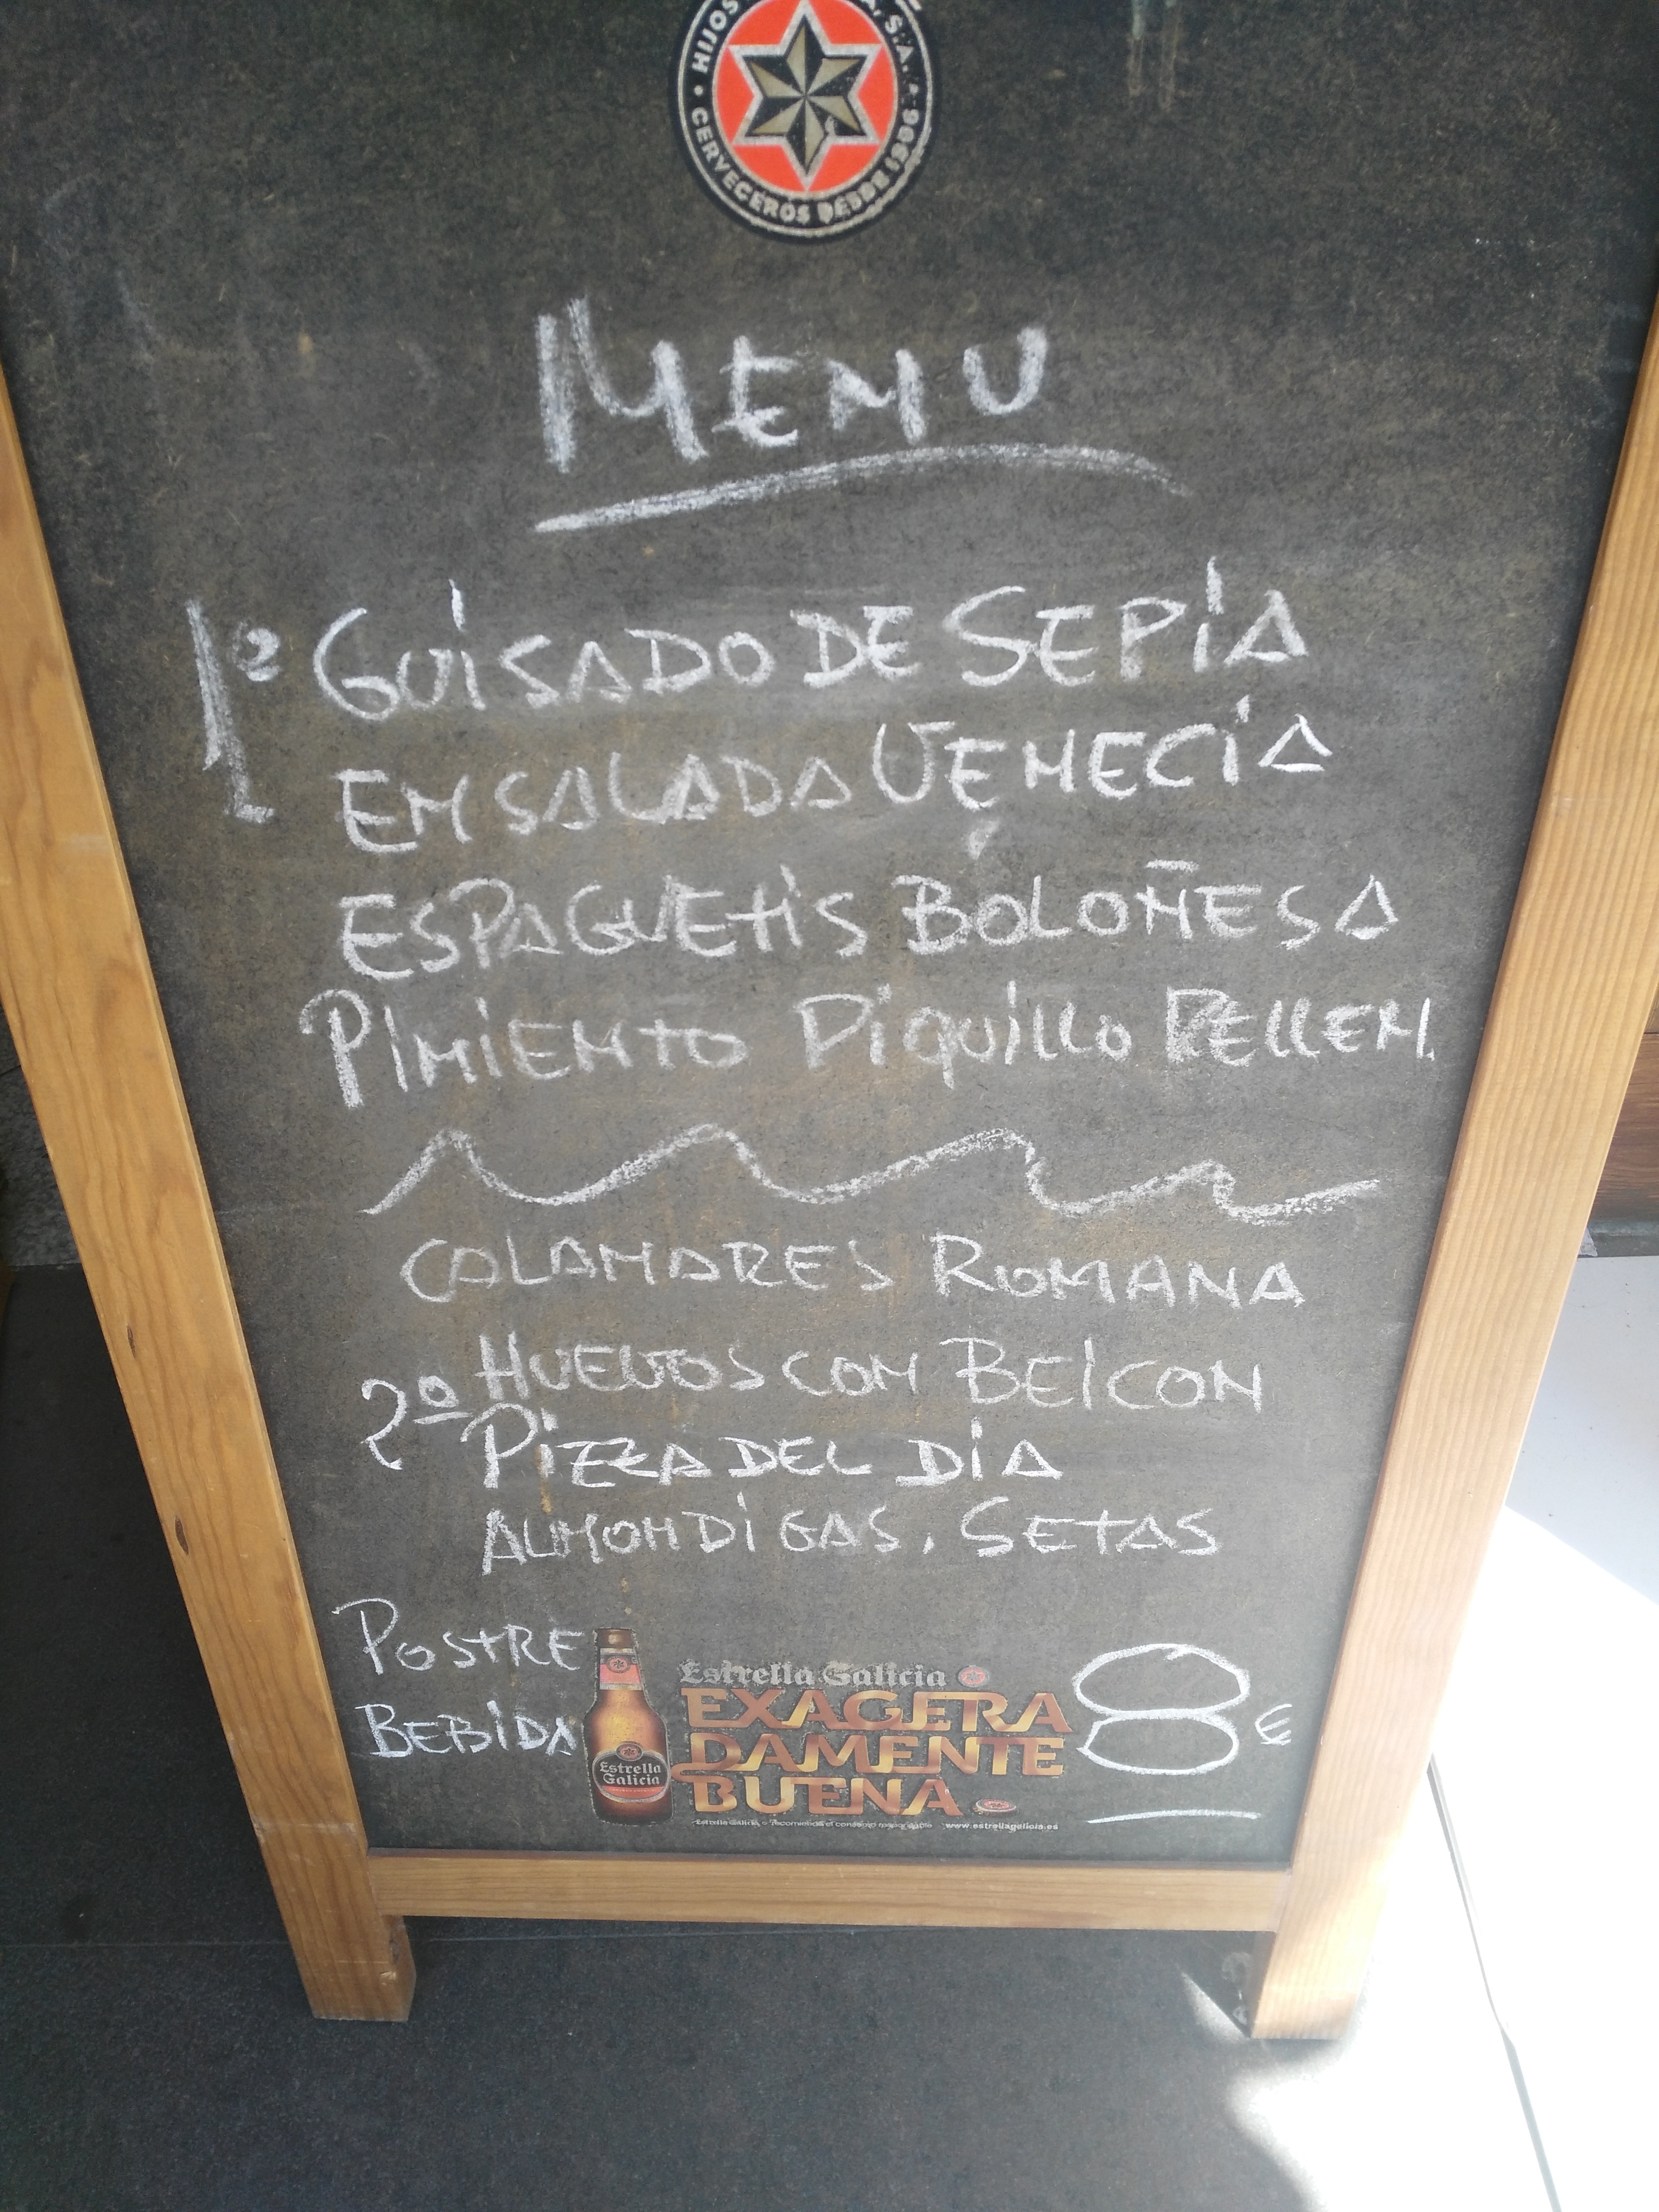 HIJOS A, S.A.
CERVECEROS DESDE 1906
MENU
1º GUISADO DE SEPIA
ENSALADA VENECIA
ESPAGUETIS BOLOÑESA
PIMIENTO PIQUILLO RELLEN.
CALAMARES ROMANA
HUEVOS CON BEICON
2º PIZZA DEL DIA
ALMONDIGAS, SETAS
POSTRE
BEBIDA
Estrella Galicia
Estrella Galicia
EXAGERA
DAMENTE
BUENA
8€
Estrella Galicia recomienda el consumo responsable www.estrellagalicia.es